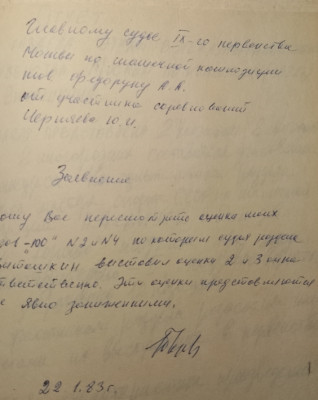 Главному судье IX-го первенства
Москвы по шашечной композиции
тов Федоруку А. К.
от участника соревнований
Черняева Ю. И.
Заявление
Вас пересмотреть оценки моих
-100" N2 и N4 по которым судья раздела
выставил оценки 2 и 3 очка
Эти оценки представляются
явно заниженными.
22.1.83г.